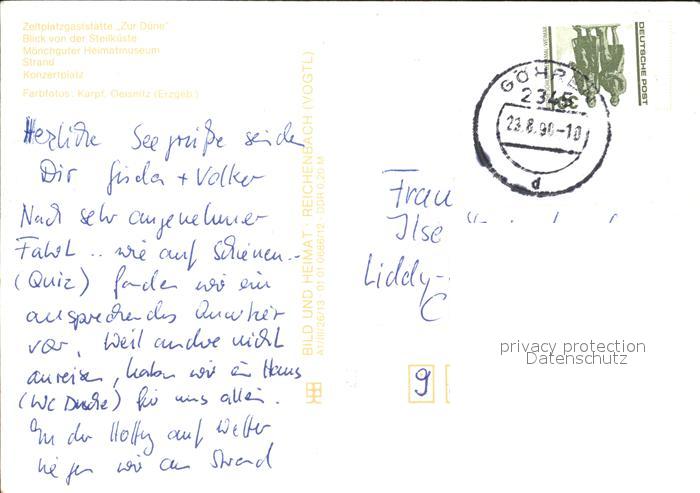 Zeltplatzgaststätte „Zur Düne"
Blick von der Steilküste
Mönchguter Heimatmuseum
Strand
Konzertplatz
Farbfotos: Karpf, Geisnitz (Erzgeb.)
Herzliche Seegrüße senden
Dir Gisela + Volker
Nach sehr angenehmer
Fahrt .. wie auf Schienen..
(Quiz) fanden wir ein
ansprechendes Quartier
vor. Weil andre nicht
anreisen, haben wir ein Haus
(WC Dusche) für uns allein.
In der Hoffng auf Wetter
liegen wir am Strand
BILD UND HEIMAT · REICHENBACH (VOGTL)
A1/III/26/13 01 01 0686/12 DDR 0,20 M
DEUTSCHE POST
GÖHREN
2345
23.8.90-10
d
Frau
Ilse
Liddy-
9
privacy protection
Datenschutz